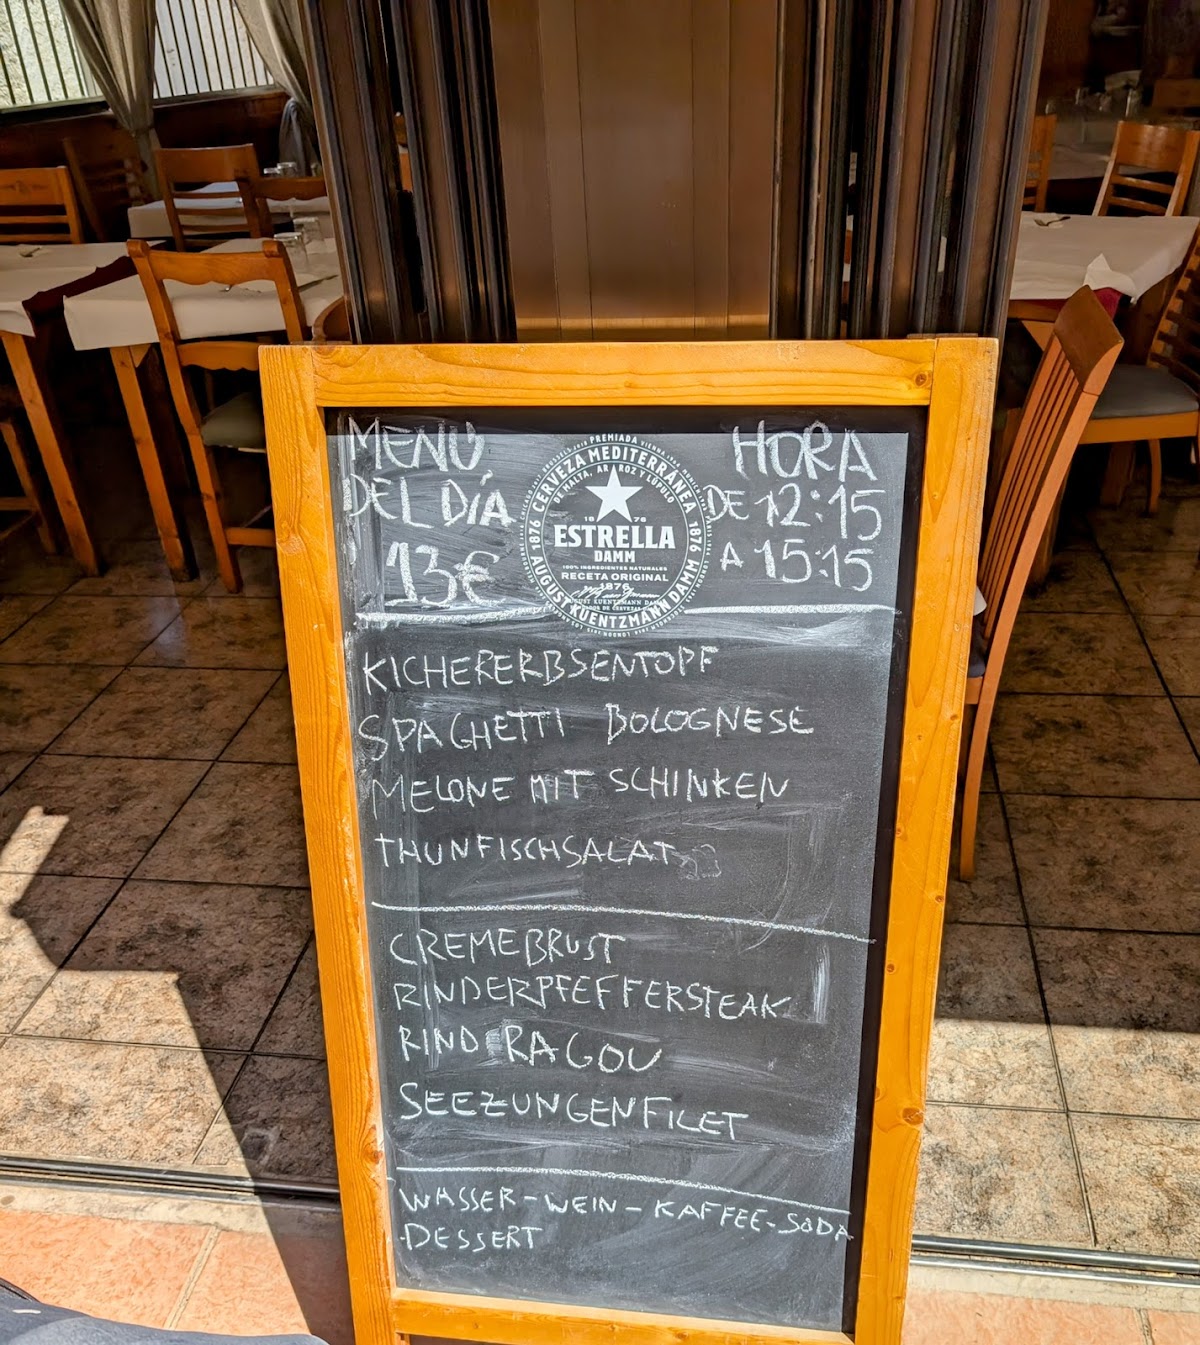 MENÚ
DEL DÍA
13€
HORA
DE 12:15
A 15:15
PREMIADA
CERVEZA MEDITERRÁNEA
DE MALTA, ARROZ Y LÚPULO
1876
1876
18 76
ESTRELLA
DAMM
100% INGREDIENTES NATURALES
RECETA ORIGINAL
1876
AUGUST KUENTZMANN DAMM
KICHERERBSENTOPF
SPAGHETTI BOLOGNESE
MELONE MIT SCHINKEN
THUNFISCHSALAT
CREMEBRUST
RINDERPFEFFERSTEAK
RIND RAGOU
SEEZUNGENFILET
WASSER - WEIN - KAFFEE - SODA
-DESSERT